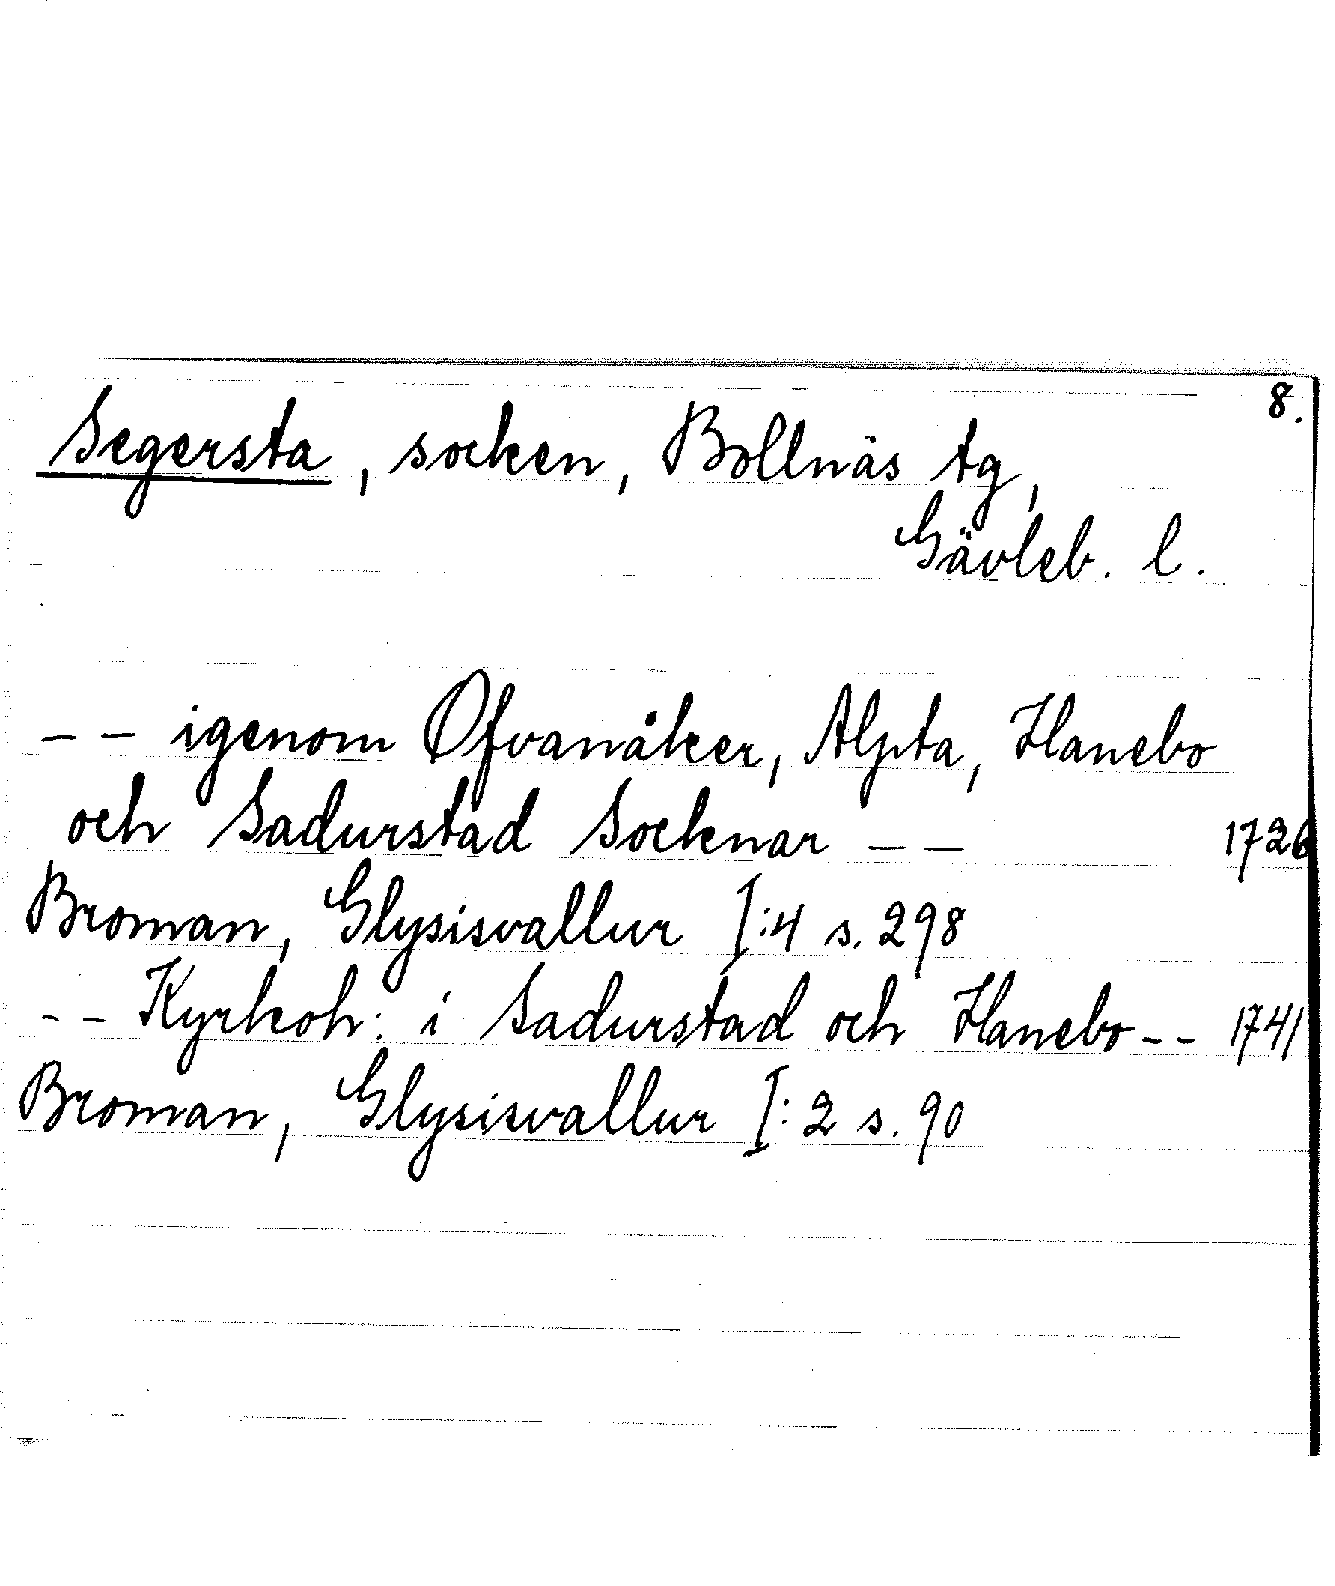 8.
Segersta, socken, Bollnäs tg,
Gävleb. l.
-- igenom Ofvanåker, Alpta, Hanebo
och Sadurstad Socknar -- 1726
Broman, Glysisvallur I:4 s. 298
-- Kyrkoh: i Sadurstad och Hanebo -- 1741
Broman, Glysisvallur I:2 s. 90